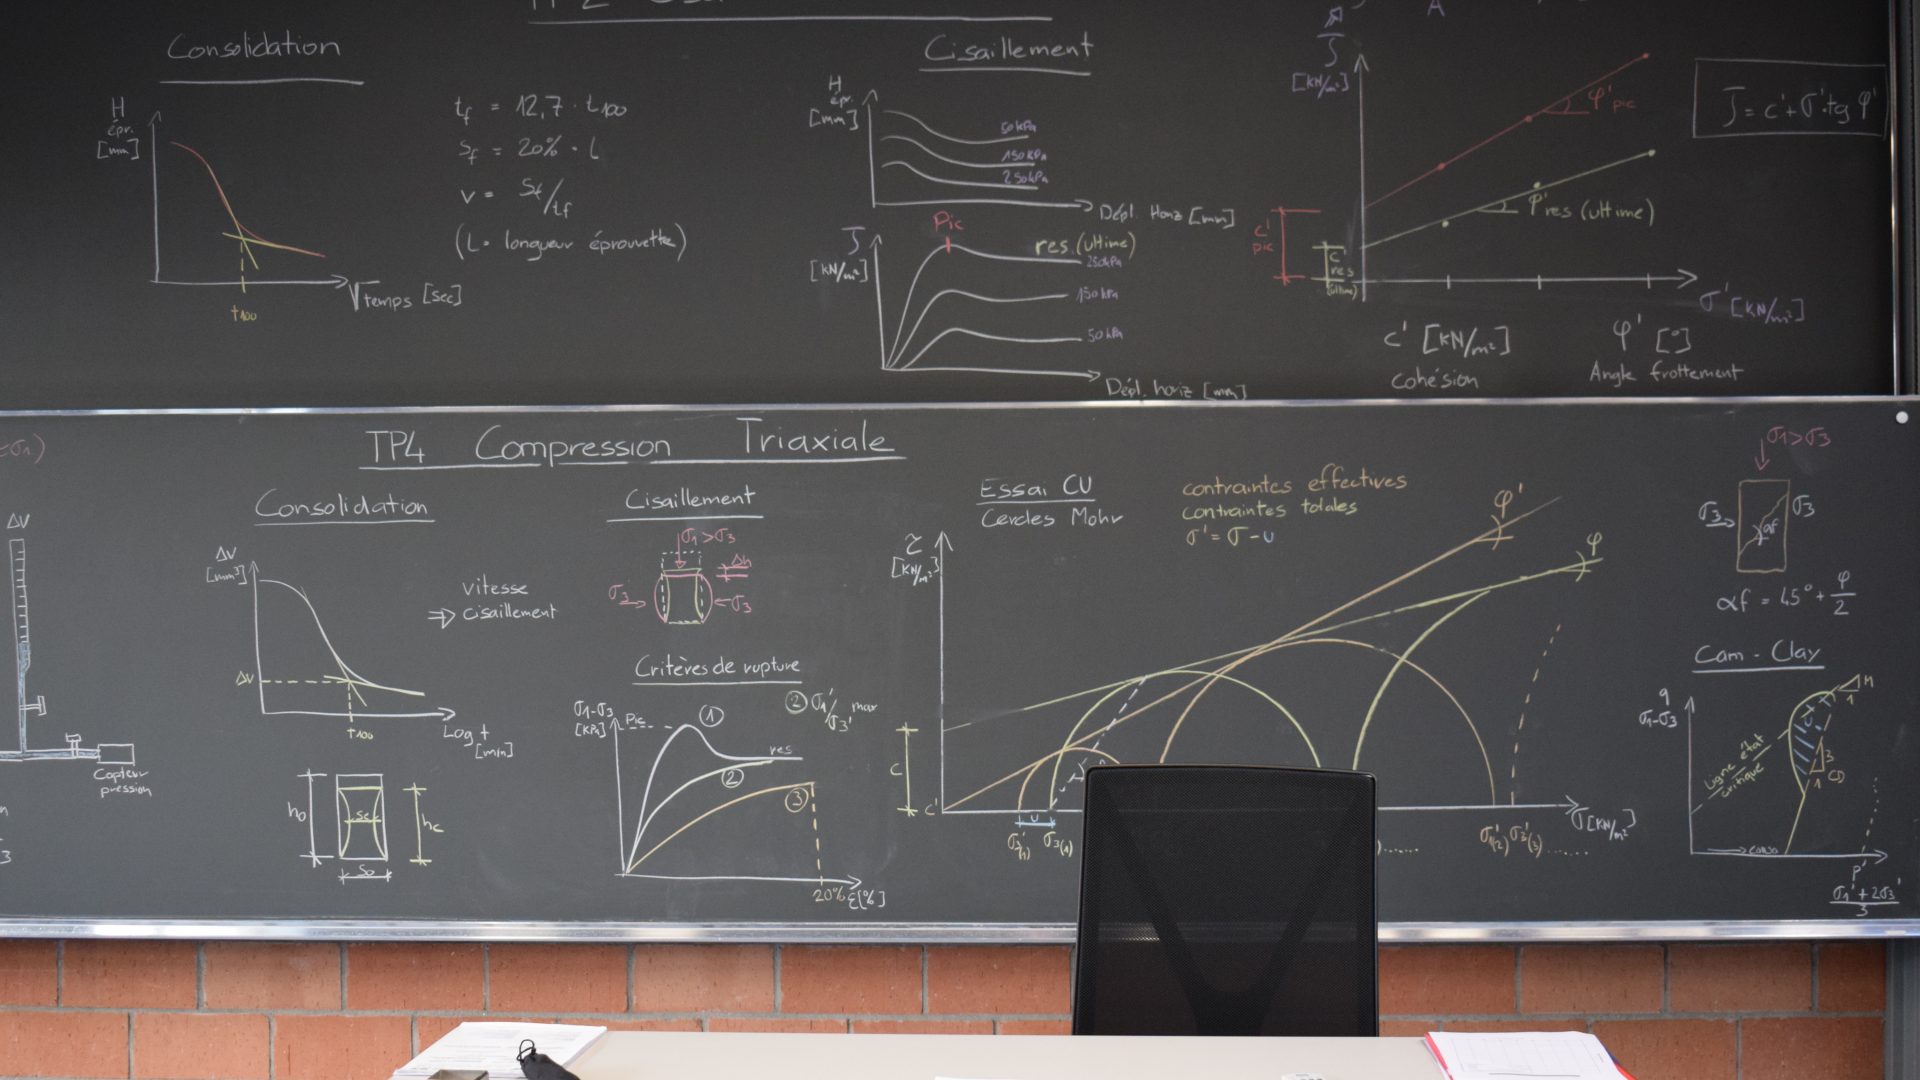 Consolidation
H
épr.
[mm]
t100
√temps [sec]
tf = 12,7 · t100
Sf = 20% · L
v = Sf/tf
(L = longueur éprouvette)
Cisaillement
H
épr.
[mm]
50kPa
150kPa
250kPa
Dépl. Horiz [mm]
Pic
τ
[KN/m²]
res. (ultime)
250kPa
150kPa
50kPa
Dépl. horiz [mm]
[KN/m²]
φ'pic
φ'res (ultime)
c'
pic
c'
res
(ultime)
σ' [KN/m²]
c' [KN/m²]
cohésion
φ' [°]
Angle frottement
τ = c' + σ'·tg φ'
TP4 Compression Triaxiale
ΔV
Capteur
pression
Consolidation
ΔV
[mm³]
ΔV
t100
Log t
[min]
vitesse
⇒ cisaillement
ho
Sc
hc
So
Cisaillement
σ1>σ3
Δh
σ3
σ3
Critères de rupture
② σ1'/σ3' max
σ1-σ3
[KPa]
Pic
①
res
②
③
20%
ε[%]
Essai CU
Cercles Mohr
contraintes effectives
contraintes totales
σ' = σ - u
τ
[KN/m²]
φ'
φ
c
c'
u
σ3'(1)
σ3(1)
σ1'(2) σ3'(3) ......
σ[KN/m²]
σ1>σ3
σ3
σ3
αf
αf = 45° + φ/2
Cam - Clay
q
σ1-σ3
M
1
Ligne état
critique
3
1
CD
conso
p'
σ1' + 2σ3'
3